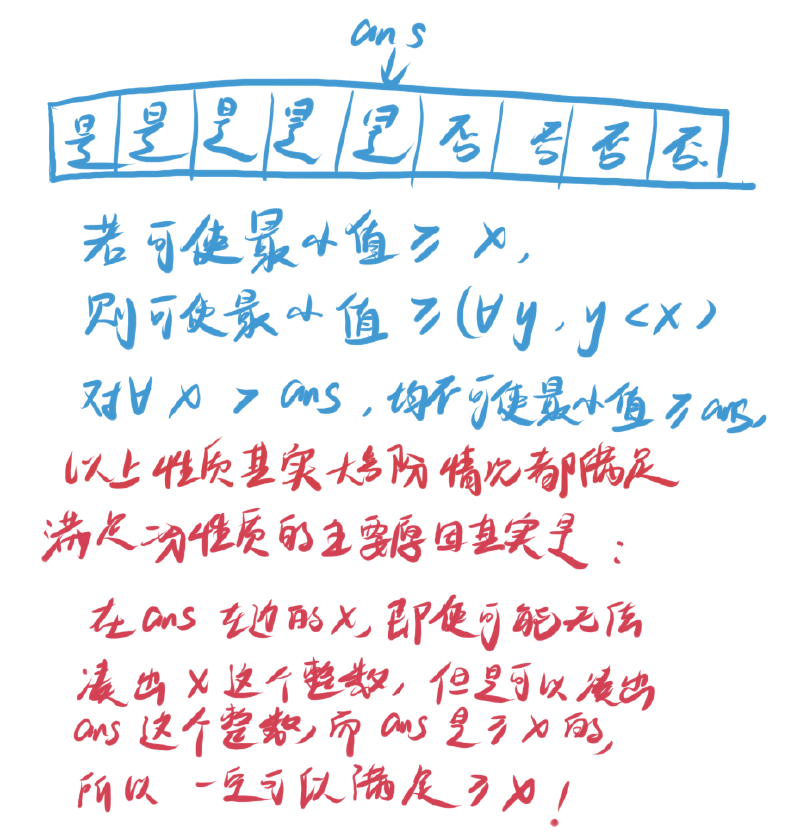 ans
是 是 是 是 是 否 否 否 否
若可使最小值≥x,
则可使最小值≥(∀y,y<x)
对∀x>ans,均不可使最小值≥ans,
以上性质其实大部份情况都满足
满足二分性质的主要原因其实是:
在ans左边的x,即使可能无法
凑出x这个整数,但是可以凑出
ans这个整数,而ans是≥x的,
所以一定可以满足≥x!